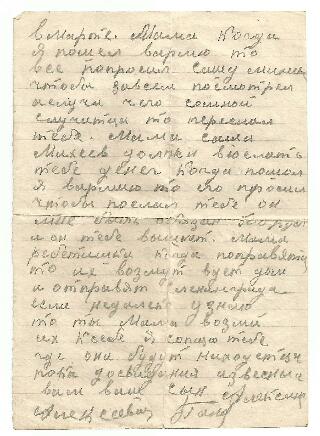 в Марте. Мама Когда
я пошел вармю то
все попросил Сашу михее
чтобы завсем посмотрел
аслучи чего сомной
случитца то переслал
тебе. Мама саша
Михеев должен выслать
тебе денег Когда пошол
я вармию то его просил
чтобы послал тебе он
мне был 
и он тебе вышлет. Мама
ребетишки Когда поправятца
то их возмут вует дом
и отправят ленинграда
если недалеко узнаю
то ты Мама возми
их Ксебе я сопщю тебе
где они будут находитца
пока досвидания известный
вам ваш сын Алексей
Алексеевич